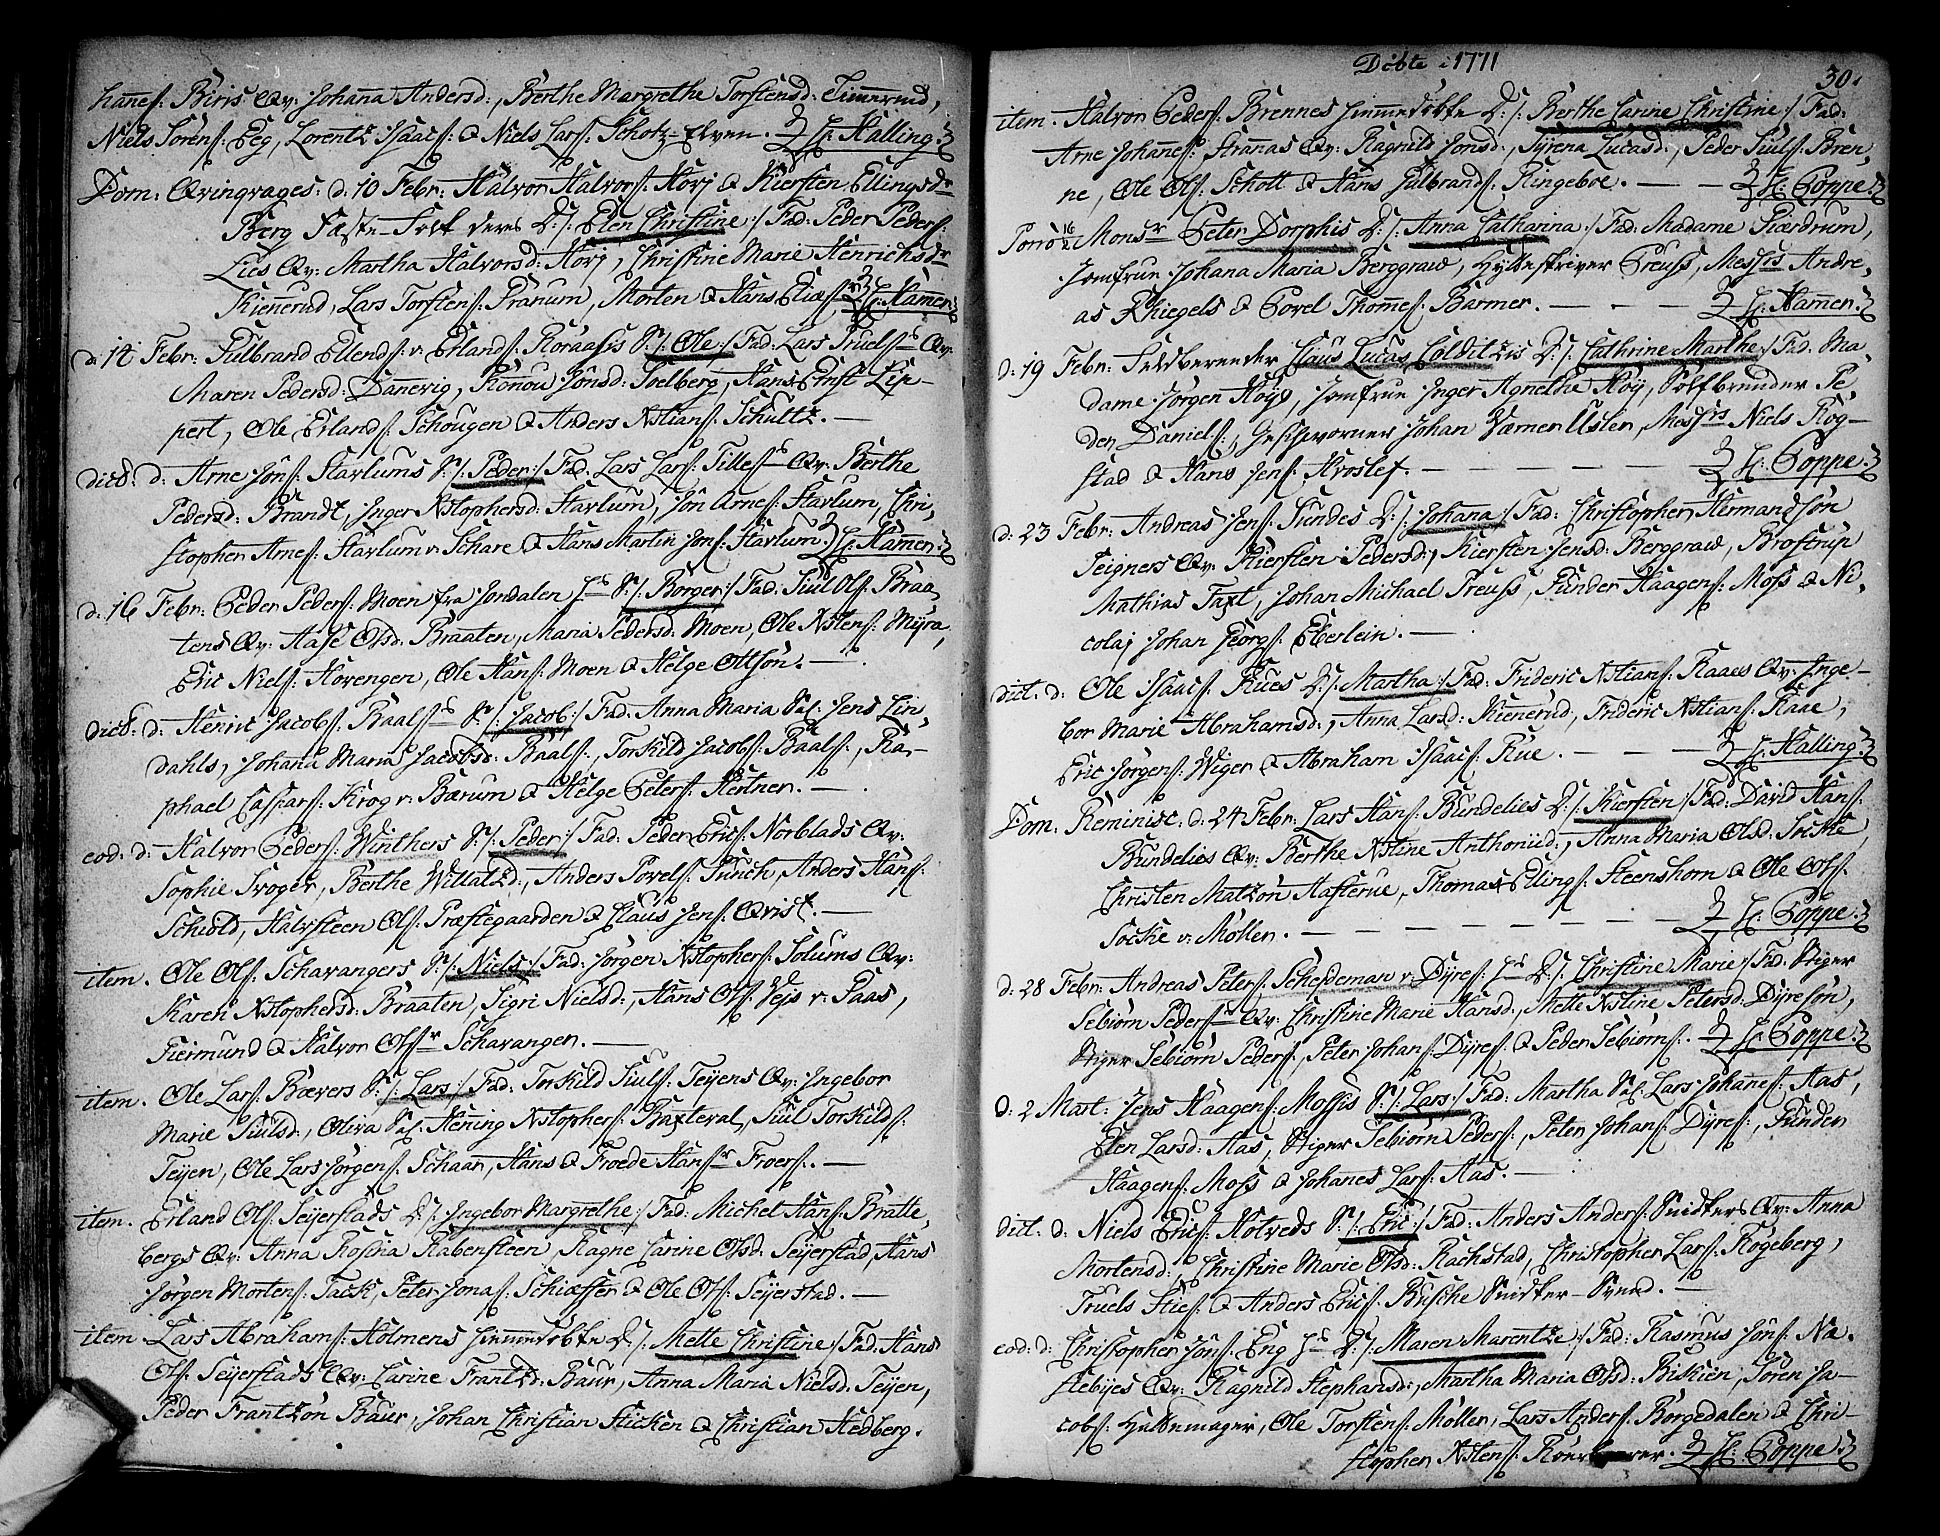 hannes: Biris Qv: Johana Andersd:, Berthe Margrethe Torstensd: Timerud,
Niels Sörens: Eeg, Lorentz Isaacs: & Niels Lars: Schotz-Elven. H: Halling.
Dom: Qvinqvages: d: 10 Febr: Halvor Halvors: Horj & Kiersten Ellingsdr
Berg Fæste-Folk deres D: /: Elen Christine :/ Fad: Peder Peders:
Lies Qv: Martha Halvorsd: Horj, Christine Marie Henrichsdr
Kienerud, Lars Torstens: Pranum, Morten & Hans H: Hamer.
d: 14 Febr: Gulbrand Ellends: v: Erlands: Koraasis S: /: Ole :/ Fad: Lars Truels: Qv:
Maren Pedersd: Danevig, Ronou Jönsd: Soelberg, Hans Ernst Lip-
pert, Ole Erlands: Schougen & Anders Xstians: Schultz. —
dict: d: Arne Jöns: Starlums S: /: Peder :/ Fad: Lars Lars: Tilles: Qv: Berthe
Pedersd: Brandt, Inger Xstophersd: Starlum, Jön Arnes: Starlum, Chri,
stopher Arnes: Starlum v: Schare & Hans Martin Jöns: Starlum. H: Hamer.
d: 16 Febr: Peder Peders: Moen fra Jondalen S: /: Borger :/ Fad: Siul Ols: Braa,
tens Qv: Aase Olsd: Braaten, Maria Pedersd: Moen, Ole Xstens: Myra,
Eric Niels: Hovengen, Ole Hans: Moen & Helge Ottsön. —
dict: d: Henric Jacobs: Baals: S: /: Jacob :/ Fad: Anna Maria Sal: Jens Lin,
dahls, Johana Maria Jacobsd: Baals:, Torkild Jacobs: Baals:, Ra,-
phael Caspars: Krog v: Bærum & Helge Peters: Hertner. —
eod: d: Halvor Peders: Winthers S: /: Peder :/ Fad: Peder Erics: Norblads Qv:
Sophie Svoger, Berthe Willatzd:, Anders Povels: Funch, Anders Hans:
Schiold, Halvsteen Ols: Præstegaarden & Claus Jens: Qvist. —
item. Ole Ols: Schavangers S: /: Niels :/ Fad: Jörgen Xstophers: Solums Qv:
Karen Xstophersd: Braaten, Sigri Nielsd:, Hans Ols: Vejs v: Saas,
Giermund & Halvor Olsr Schavangen. —
item. Ole Lars: Bævers S: /: Lars :/ Fad: Torkild Siuls: Teijens Qv: Ingebor
Marie Siulsd:, Oliva Sal: Hening Xstophers: Baxteval, Siul Torkilds:
Teijen, Ole Lars Jörgens: Schaar, Hans & Froede Hansr Froers: —
item. Erland Ols: Seijerstads D: /: Ingebor Margrethe :/ Fad: Michel Hans: Bratte,
bergs Qv: Anna Rosina Rabensteen, Ragne Carine Olsd: Seijerstad, Hans
Jörgen Mortens: Tack, Peter Jonas: Schiæffer & Ole Ols: Seijerstad. —
item. Lars Abrahams: Holmens hiemedöbte D: /: Mette Christine :/ Fad: Hans
Ols: Seijerstads Qv: Carine Frantzd: Baur, Anna Maria Nielsd: Teijen,
Peder Frantzön Baur, Johan Christian Sticken & Christian Hedberg.
Döbte i 1771
30.
item. Halvor Peders: Brennes hiemedöbte D: /: Berthe Carine Christine :/ Fad:
Arne Johanes: Stranas Qv: Ragnild Jonsd:, Syrena Lucasd:, Peder Siuls: Bren,
ne, Ole Ols: Schott & Hans Gulbrands: Ringeboe. — — H: Poppe.
Monsr Peter Dorphis D: /: Anna Catharina :/ Fad: Madame Kierdrum,
Jomfrue Johana Maria Berggraw, Hÿtteskriver Preuss, Messis Andre,
as Rhiegels & Povel Thomes: Barmer. — — — H: Hamer.
d: 19 Febr: Feldbereeder Claus Lucas Colditzis D: /: Cathrine Marthe :/ Fad: Ma,
dame Jörgen Höijs, Jomfrue Inger Agnethe Höij, Sölfbrender Pe
der Daniels:, Geschworner Johan Værner Usler, Messis Niels Rog-
stad & Hans Jens: Kroslef. — — — — — H: Poppe.
d: 23 Febr: Andreas Jens: Sundes D: /: Johana :/ Fad: Christopher Hermandsön
Teigners Qv: Kiersten Pedersd:, Kiersten Jensd: Berggraw, Brostrup
Mathias Taxt, Johan Michael Preuss, Gunder Haagens: Moss & Ni,
colaj Johan Georgs: Eberlein. —
dict: d: Ole Isaacs: Rues D: /: Martha :/ Fad: Frideric Xstians: Raaes Qv: Inge-
bor Marie Abrahamsd:, Anna Larsd: Kienerud, Frideric Xstians: Raae,
Eric Jörgens: Wiger & Abraham Isaacs: Rue. — — — H: Halling.
Dom: Reminisc: d: 24 Febr: Lars Hans: Bundelies D: /: Kiersten :/ Fad: David Hans:
Bundelies Qv: Berthe Xstine Anthonid:, Anna Maria Olsd: Socke,
Christen Matzön Aasterue, Thomas Ellings: Steenshorn & Ole Ols:
Socke v: Möllen. — — — — — — H: Poppe.
d: 28 Febr: Andreas Peters: Schesdeman v: Dÿres: D: /: Christine Marie :/ Fad: Stiger
Sebiörn Peders: Qv: Christine Marie Hansd:, Mette Xstine Petersd: Dÿresön,
Stiger Sebiörn Peders:, Peter Johans: Dÿres: & Peder Sebiörns: — H: Poppe.
d: 2 Mart: Jens Haagens: Mossis S: /: Lars :/ Fad: Martha Sal: Lars Johanes: Aas,
Elen Larsd: Aas, Stiger Sebiörn Peders:, Peter Johans: Dÿres:, Gunder
Haagens: Moss & Johanes Lars: Aas. —
dict: d: Niels Erics: Hotveds S: /: Eric :/ Fad: Anders Anders: Snidkers Qv: Anna
Mortensd:, Christine Marie Olsd: Rachstad, Christopher Lars: Rögeberg,
Truels Sties: & Anders Erics: Busche Snidker-Svend. —
eod: d: Christopher Jöns: Eng D: /: Maren Marentze :/ Fad: Rasmus Jöns: Næ,
stebÿes Qv: Ragnild Stephansd:, Martha Maria Olsd: Biskien, Sören Ja-
cobs: Hÿttemager, Ole Torstens: Möller, Lars Anders: Borgedalen & Chri-
stopher Xstens: H: Poppe.